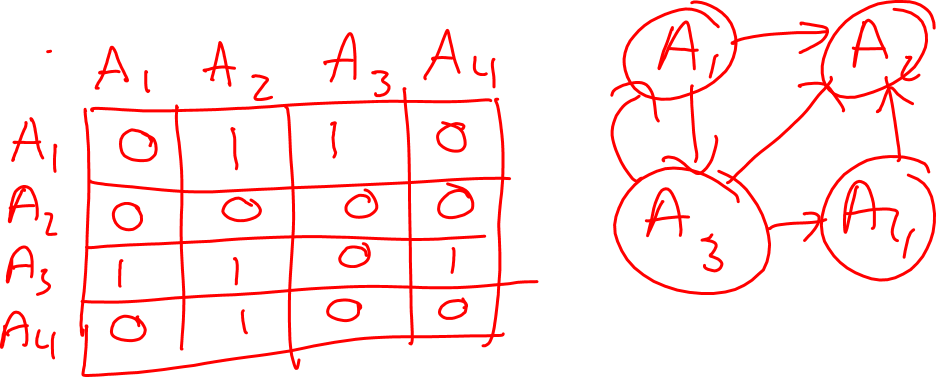 A1 A2 A3 A4
A1 0 1 1 0
A2 0 0 0 0
A3 1 1 0 1
A4 0 1 0 0
A1 A2
A3 A4